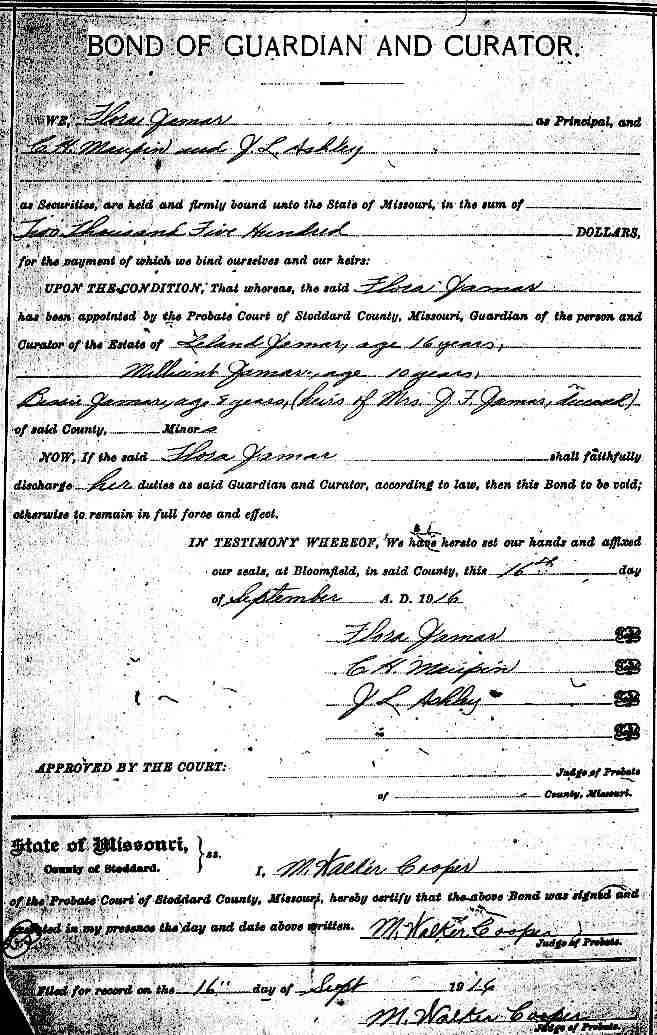 BOND OF GUARDIAN AND CURATOR.
WE, Flora Jamar as Principal, and
C. H. Maupin and J. L. Ashley
as Securities, are held and firmly bound unto the State of Missouri, in the sum of
Two Thousand Five Hundred DOLLARS,
for the payment of which we bind ourselves and our heirs:
UPON THE CONDITION, That whereas, the said Flora Jamar
has been appointed by the Probate Court of Stoddard County, Missouri, Guardian of the person and
Curator of the Estate of Leland Jamar, age 16 years,
Millicint Jamar, age 10 years,
Bessie Jamar, age 8 years, (heirs of Mrs. J. F. Jamar, deceased)
of said County, Minors
NOW, If the said Flora Jamar shall faithfully
discharge her duties as said Guardian and Curator, according to law, then this Bond to be void;
otherwise to remain in full force and effect.
IN TESTIMONY WHEREOF, We have hereto set our hands and affixed
our seals, at Bloomfield, in said County, this 16th day
of September A. D. 1916
Flora Jamar
C. H. Maupin
J L Ashley
APPROVED BY THE COURT:
Judge of Probate
of County, Missouri.
State of Missouri,
County of Stoddard. } ss.
I, M. Walker Cooper
of the Probate Court of Stoddard County, Missouri, hereby certify that the above Bond was signed and
in my presence the day and date above written. M. Walker Cooper
Judge of Probate.
Filed for record on the 16" day of Sept 1916
M. Walker Cooper
Judge of Probate.